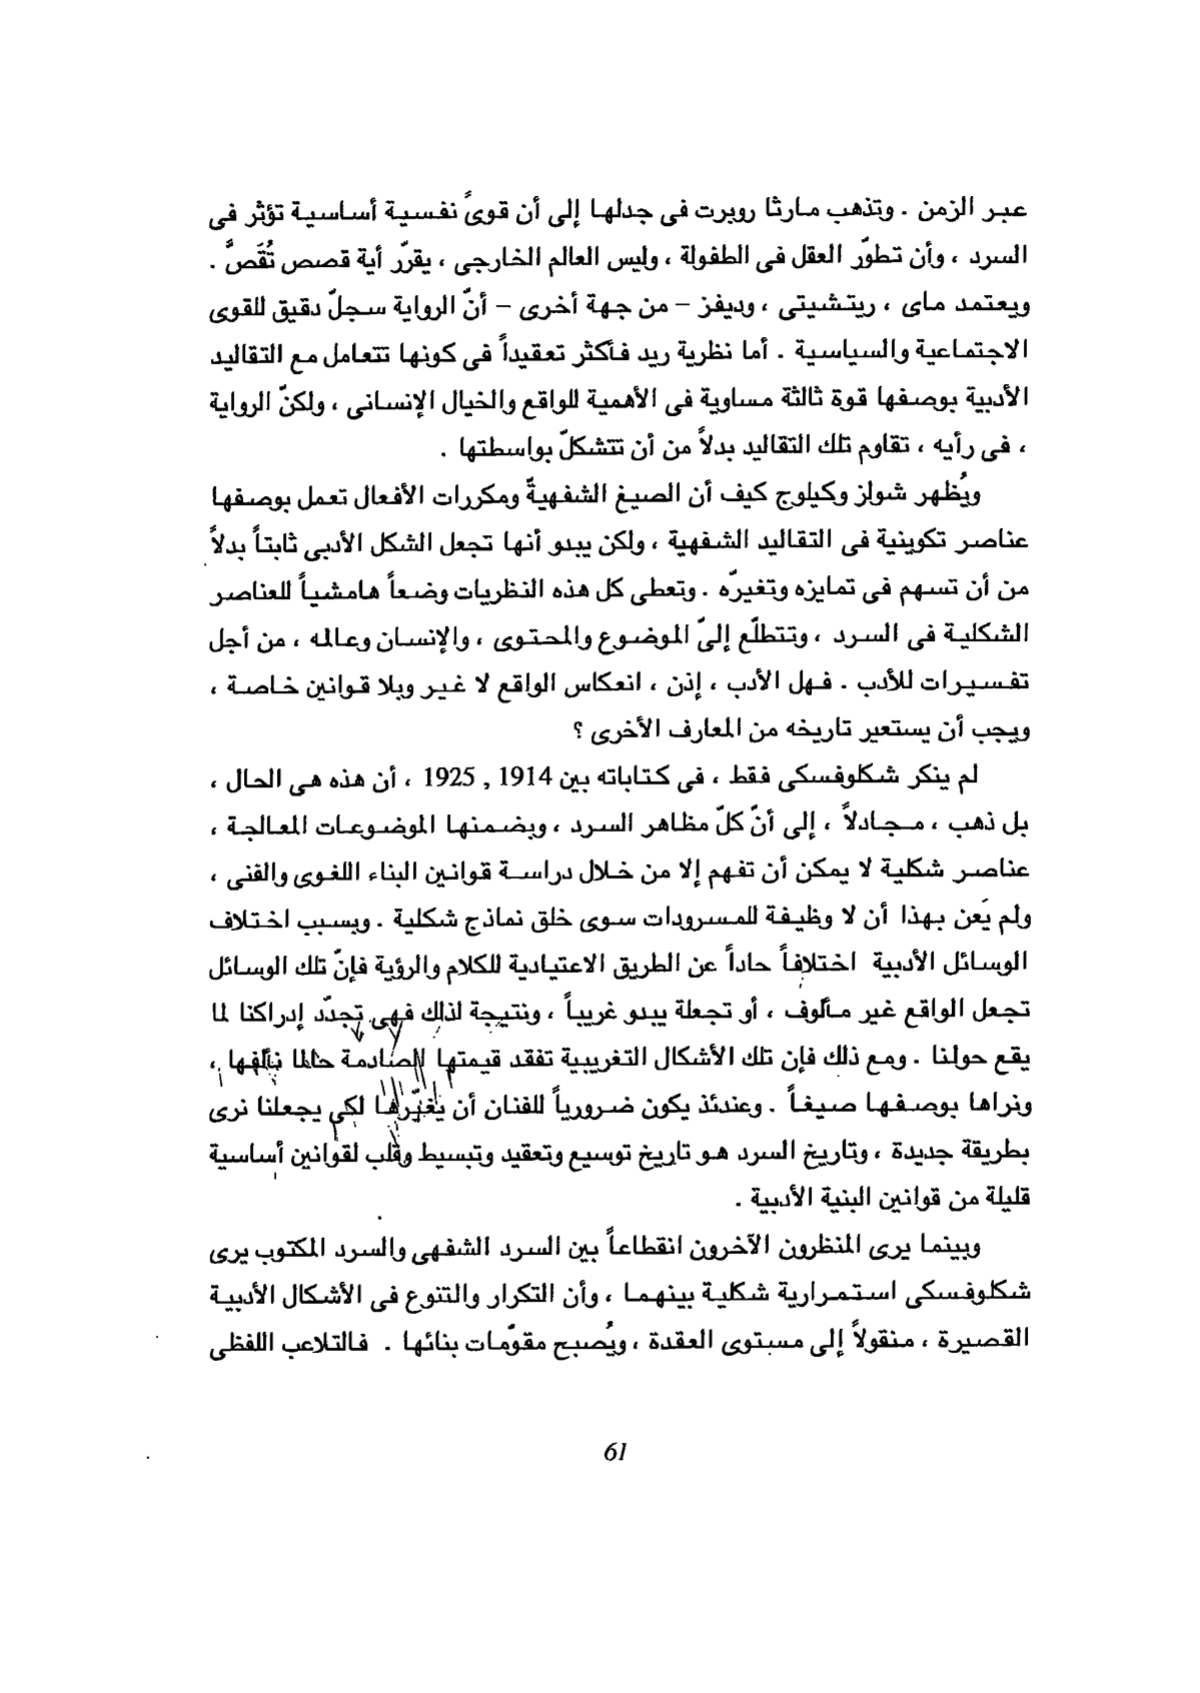 عبر الزمن . وتذهب مارثا روبرت فى جدلها إلى أن قوىً نفسية أساسية تؤثر فى
السرد ، وأن تطوّر العقل فى الطفولة ، وليس العالم الخارجى ، يقرّر أية قصص تُقَصُّ .
ويعتمد ماى ، ريتشيتى ، وديفز – من جهة أخرى – أنّ الرواية سجلّ دقيق للقوى
الاجتماعية والسياسية . أما نظرية ريد فأكثر تعقيداً فى كونها تتعامل مع التقاليد
الأدبية بوصفها قوة ثالثة مساوية فى الأهمية للواقع والخيال الإنسانى ، ولكنّ الرواية
، فى رأيه ، تقاوم تلك التقاليد بدلاً من أن تتشكلّ بواسطتها .
ويُظهر شولز وكيلوج كيف أن الصيغ الشفهيةّ ومكررات الأفعال تعمل بوصفها
عناصر تكوينية فى التقاليد الشفهية ، ولكن يبدو أنها تجعل الشكل الأدبى ثابتاً بدلاً
من أن تسهم فى تمايزه وتغيرّه . وتعطى كل هذه النظريات وضعاً هامشياً للعناصر
الشكلية فى السرد ، وتتطلّع إلىّ الموضوع والمحتوى ، والإنسان وعالمه ، من أجل
تفسيرات للأدب . فهل الأدب ، إذن ، انعكاس الواقع لا غير وبلا قوانين خاصة ،
ويجب أن يستعير تاريخه من المعارف الأخرى ؟
لم ينكر شكلوفسكى فقط ، فى كتاباته بين 1914 , 1925 ، أن هذه هى الحال ،
بل ذهب ، مجادلاً ، إلى أنّ كلّ مظاهر السرد ، وبضمنها الموضوعات المعالجة ،
عناصر شكلية لا يمكن أن تفهم إلا من خلال دراسة قوانين البناء اللغوى والفنى ،
ولم يَعن بهذا أن لا وظيفة للمسرودات سوى خلق نماذج شكلية . وبسبب اختلاف
الوسائل الأدبية اختلافاً حاداً عن الطريق الاعتيادية للكلام والرؤية فإنّ تلك الوسائل
تجعل الواقع غير مألوف ، أو تجعلة يبدو غريباً ، ونتيجة لذلك فهى تجدّد إدراكنا لما
يقع حولنا . ومع ذلك فإن تلك الأشكال التغريبية تفقد قيمتها الصادمة حالما نألفها ،
ونراها بوصفها صيغاً . وعندئذ يكون ضرورياً للفنان أن يغيّرها لكى يجعلنا نرى
بطريقة جديدة ، وتاريخ السرد هو تاريخ توسيع وتعقيد وتبسيط وقلب لقوانين أساسية
قليلة من قوانين البنية الأدبية .
وبينما يرى المنظرون الآخرون انقطاعاً بين السرد الشفهى والسرد المكتوب يرى
شكلوفسكى استمرارية شكلية بينهما ، وأن التكرار والتنوع فى الأشكال الأدبية
القصيرة ، منقولاً إلى مستوى العقدة ، ويُصبح مقوّمات بنائها . فالتلاعب اللفظى
61